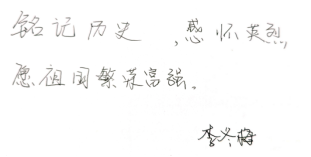 铭记历史，感怀英烈，
愿祖国繁荣富强。
李冬梅